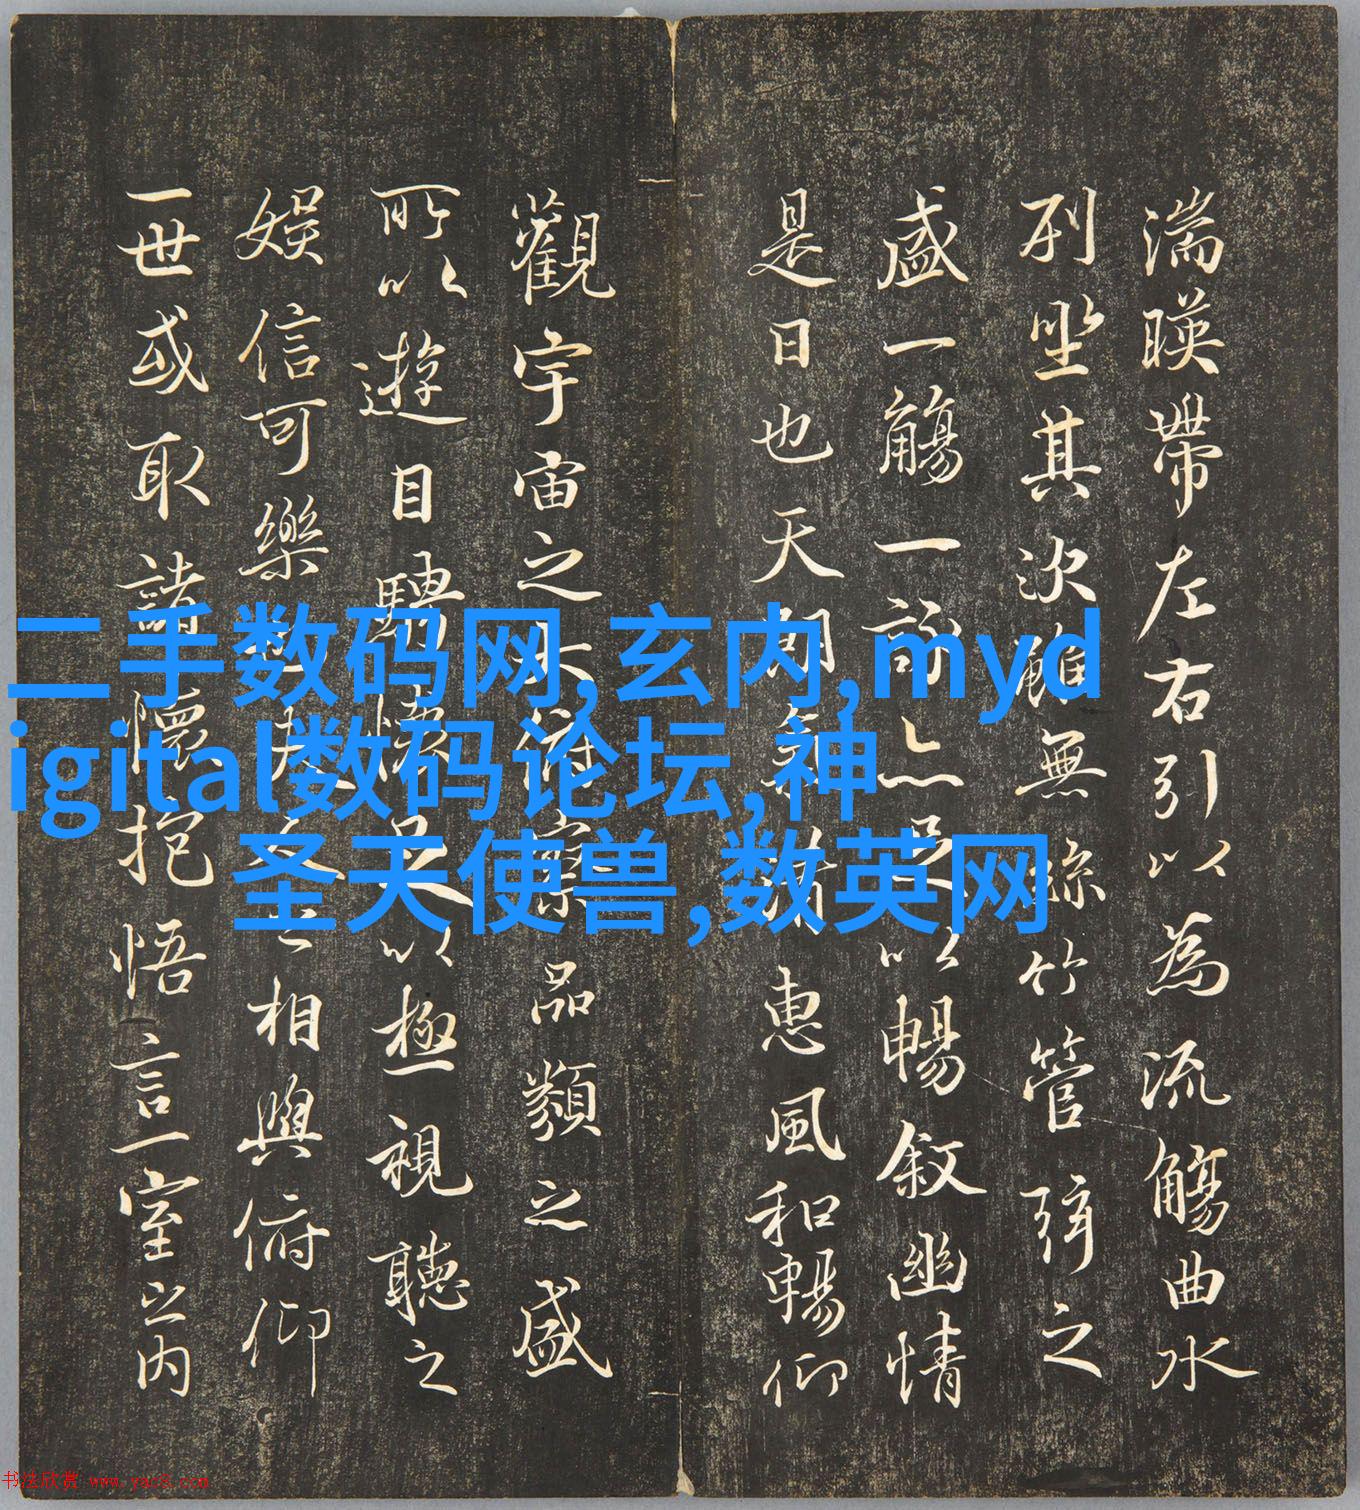 湍暎帶左右引以為流觴曲水
列坐其次雖無絲竹管弦之
盛一觴一詠亦足以暢敘幽情
是日也天朗氣清惠風和暢仰
觀宇宙之大俯察品類之盛
所以遊目騁懷足以極視聽之
娛信可樂也夫人之相與俯仰
一世或取諸懷抱悟言一室之内
二手数码网,玄内,myd
igital数码论坛,神
圣天使兽,数英网
书法欣赏 www.yac8.com